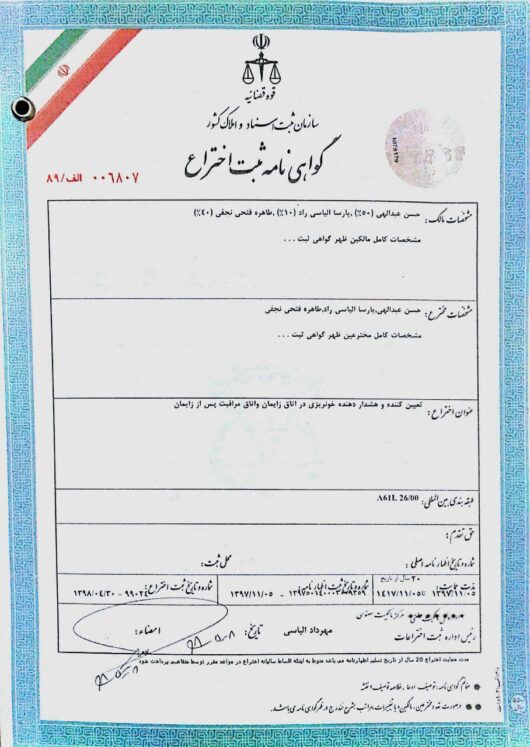 قوه قضائیه
سازمان ثبت اسناد و املاک کشور
گواهی نامه ثبت اختراع
۰۰۶۸۰۷ الف/۸۹
مشخصات مالک: حسن عبدالهی (۵۰٪) ,پارسا الیاسی راد (۱۰٪) ,طاهره فتحی نجفی (۴۰٪)
مشخصات کامل مالکین ظهر گواهی ثبت ...
مشخصات مخترع: حسن عبدالهی,پارسا الیاسی راد,طاهره فتحی نجفی
مشخصات کامل مخترعین ظهر گواهی ثبت ...
عنوان اختراع: تعیین کننده و هشدار دهنده خونریزی در اتاق زایمان واتاق مراقبت پس از زایمان
طبقه بندی بین المللی: A61L 26/00
حق تقدم:
شماره و تاریخ اظهار نامه اصلی: محل ثبت:
مدت حمایت: ۲۰ سال از تاریخ ۱۳۹۷/۱۱/۰۵ تا ۱۴۱۷/۱۱/۰۵
شماره و تاریخ ثبت اظهار نامه: ۱۳۹۷/۱۱/۰۵
شماره و تاریخ ثبت اختراع: ۱۳۹۸/۰۴/۳۰ -
مرکز مالکیت معنوی
رئیس اداره ثبت اختراعات مهرداد الیاسی تاریخ: امضاء:
مدت حمایت اختراع 20 سال از تاریخ تسلیم اظهارنامه می باشد منوط به اینکه اقساط سالیانه اختراع در مواعد مقرر توسط متقاضی پرداخت شود
ضمائم گواهی نامه: توصیف، ادعا، خلاصه توصیف و نقشه
در صورت تعدد مخترعین، مالکین و یا تغییرات، مراتب بشرح مندرج در ظهر گواهی نامه می باشد.